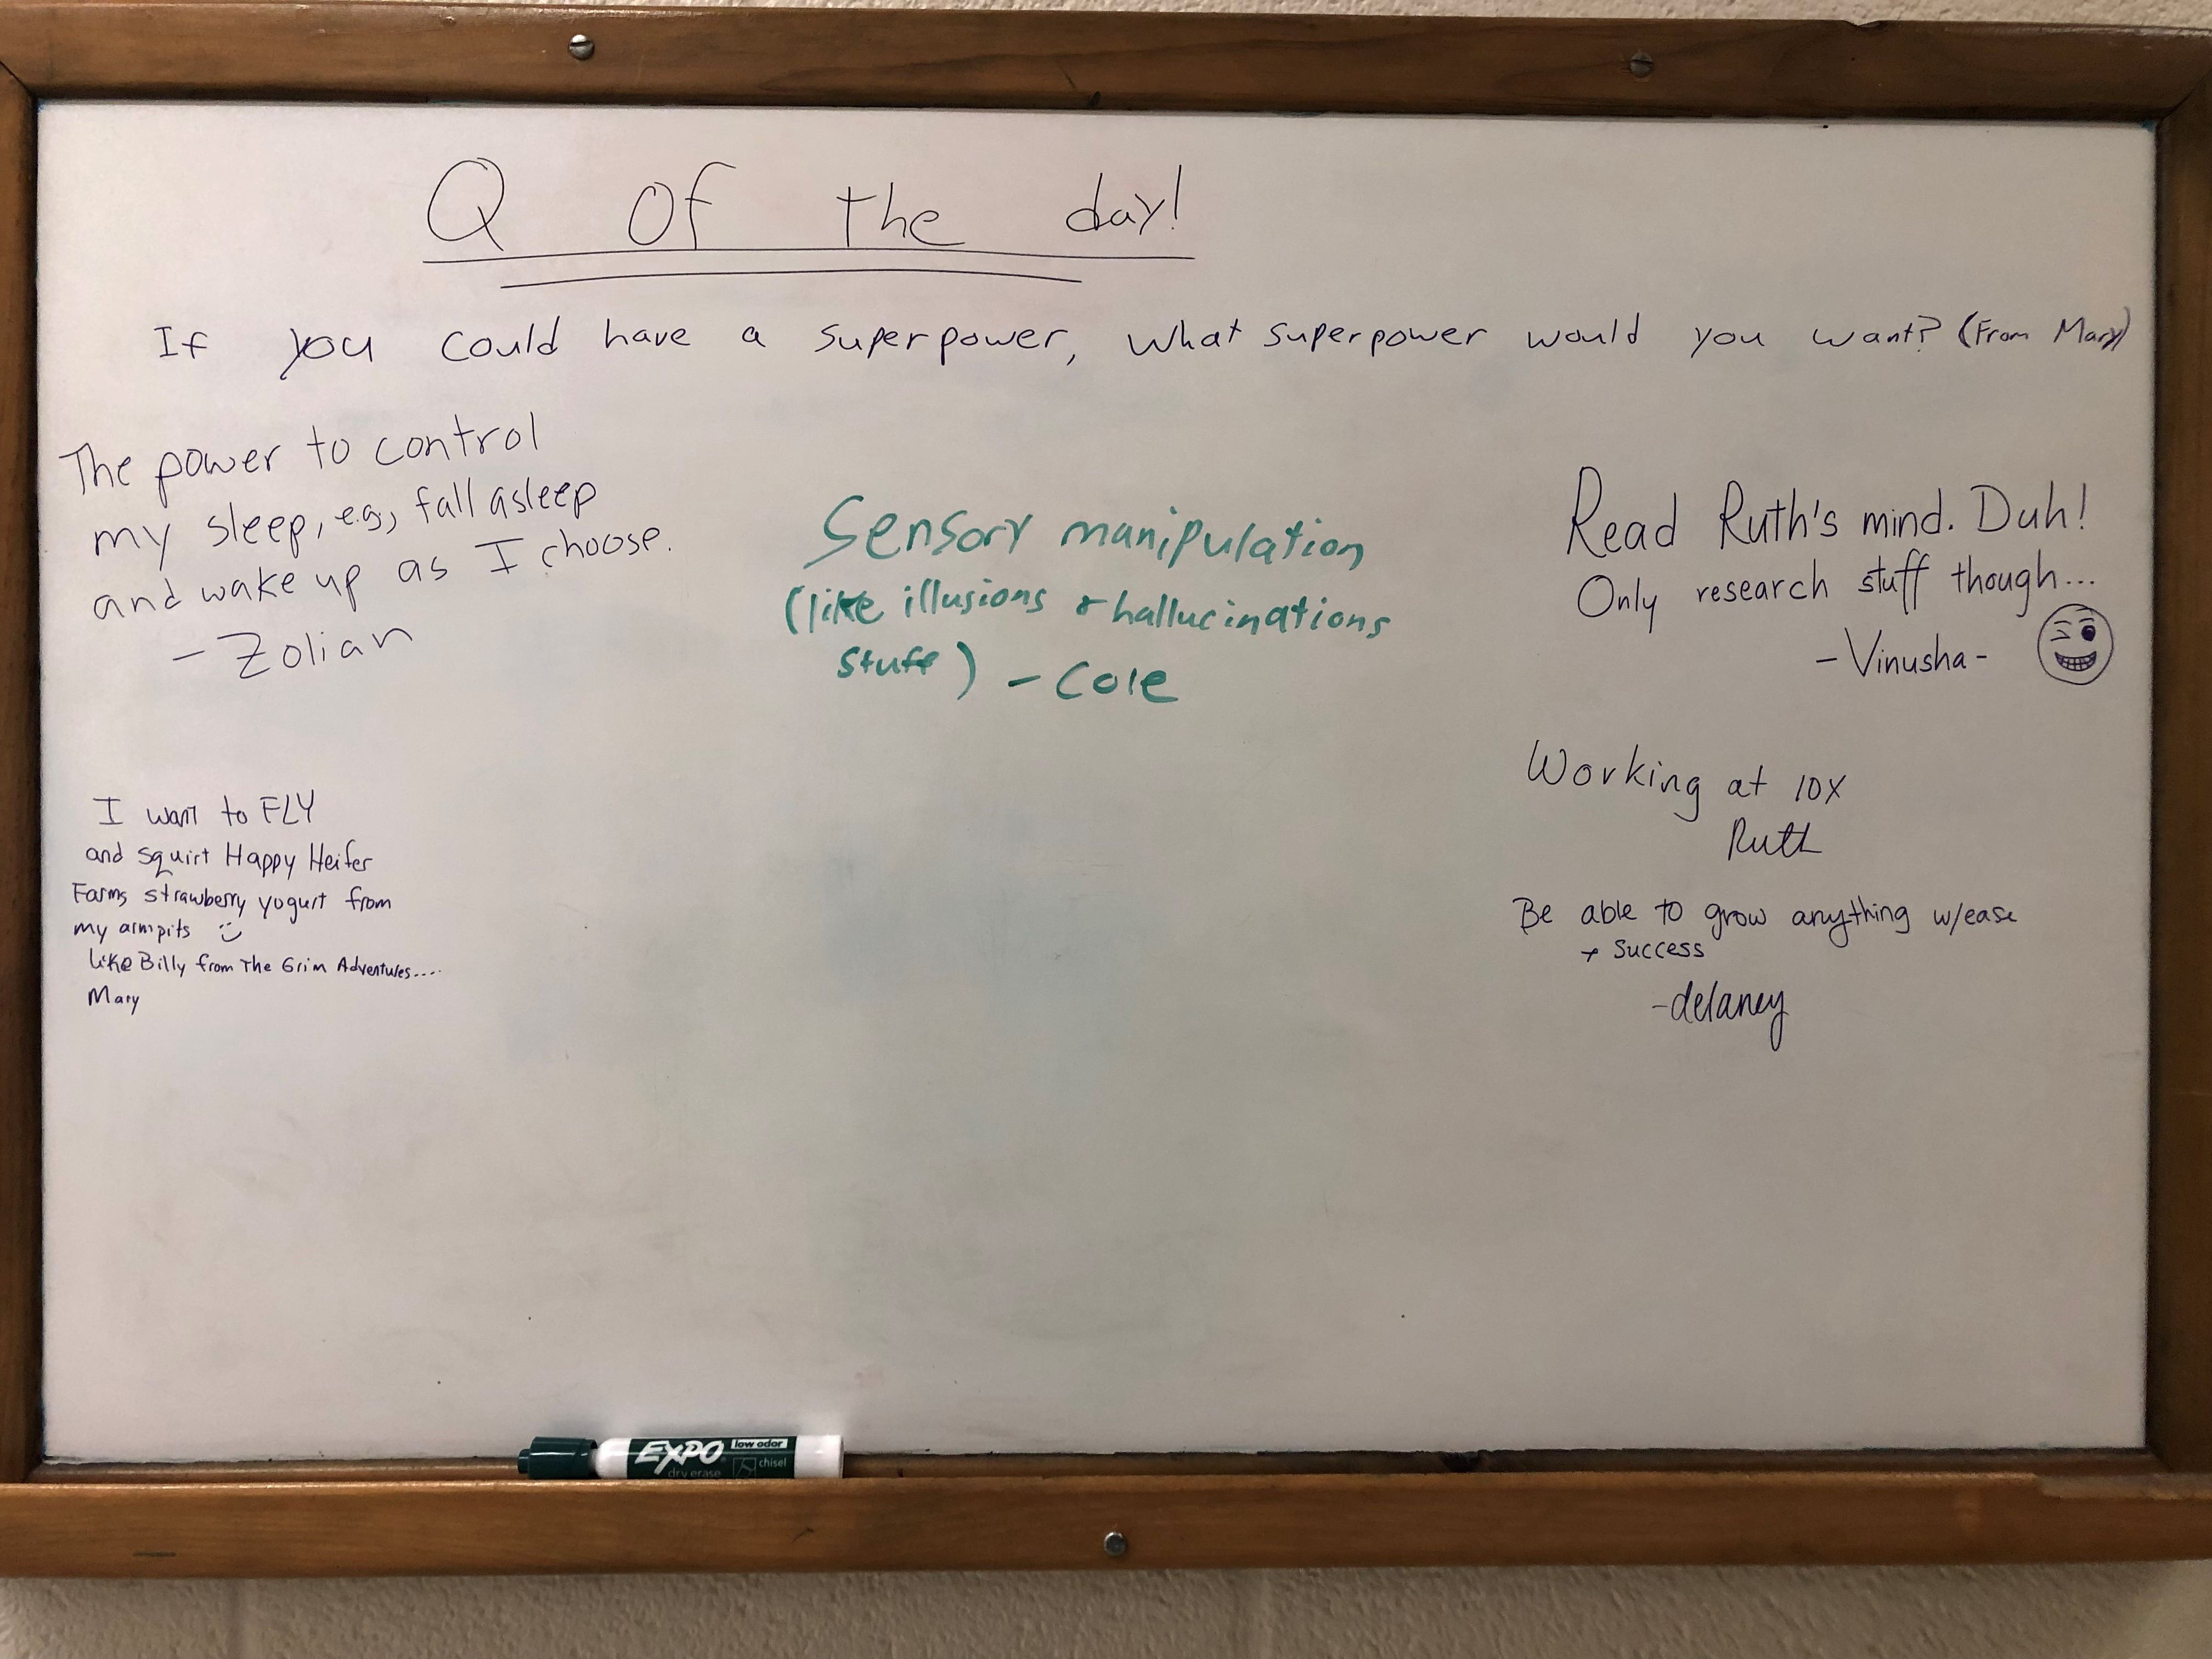 Q Of the day!
If you could have a superpower, what superpower would you want? (From Mary)
The power to control
my sleep, e.g., fall asleep
and wake up as I choose.
- Zolian
Sensory manipulation
(like illusions & hallucinations
stuff) - Cole
Read Ruth's mind. Duh!
Only research stuff though...
- Vinusha -
I want to FLY
and squirt Happy Heifer
Farms strawberry yogurt from
my armpits :)
like Billy from The Grim Adventures....
Mary
Working at 10X
Ruth
Be able to grow anything w/ease
+ success
-delaney
EXPO low odor
dry erase chisel